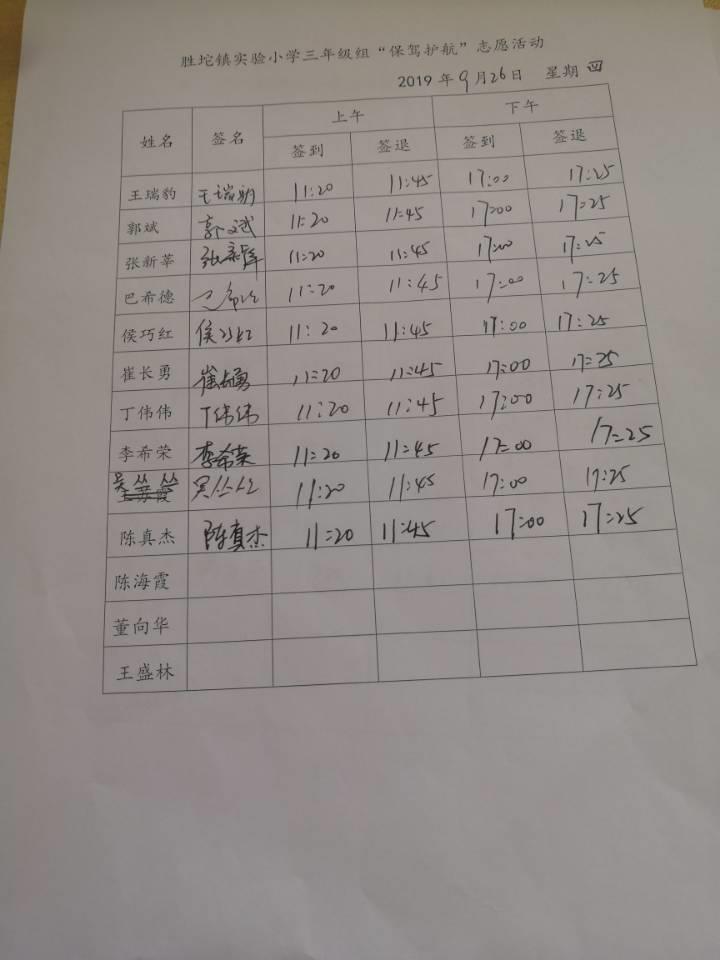 胜坨镇实验小学三年级组“保驾护航”志愿活动
2019年9月26日 星期四
姓名 签名 上午 下午
签到 签退 签到 签退
王瑞豹 王瑞豹 11:20 11:45 17:00 17:25
郭斌 郭斌 11:20 11:45 17:00 17:25
张新莘 张新莘 11:20 11:45 17:00 17:25
巴希德 11:20 11:45 17:00 17:25
侯巧红 侯巧红 11:20 11:45 17:00 17:25
崔长勇 崔长勇 11:20 11:45 17:00 17:25
丁伟伟 丁伟伟 11:20 11:45 17:00 17:25
李希荣 李希荣 11:20 11:45 17:00 17:25
吴丛丛 吴丛丛 11:20 11:45 17:00 17:25
陈真杰 陈真杰 11:20 11:45 17:00 17:25
陈海霞
董向华
王盛林